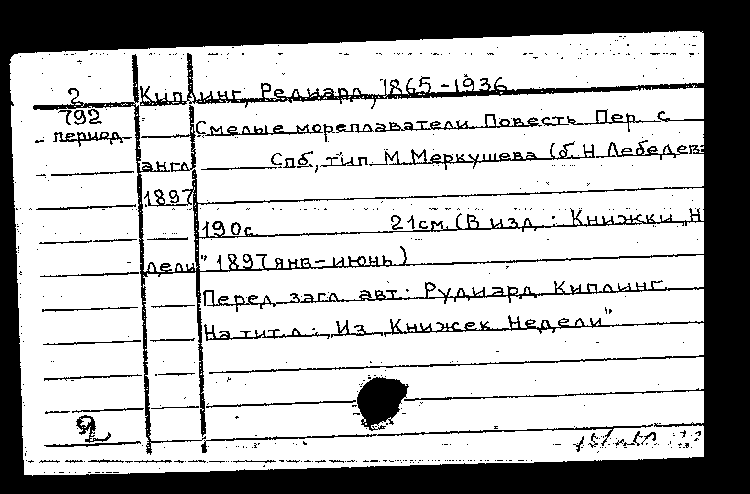 2 Киплинг, Редиард, 1865-1936
792
период Смелые мореплаватели. Повесть. Пер. с
англ. Спб, тип. М. Меркушева (б. Н. Лебедева
1897
190с. 21см. (В изд.: Книжки „Не
дели" 1897 янв-июнь)
Перед загл. авт.: Рудиард Киплинг
На тит. л.: „Из „Книжек Недели"
2